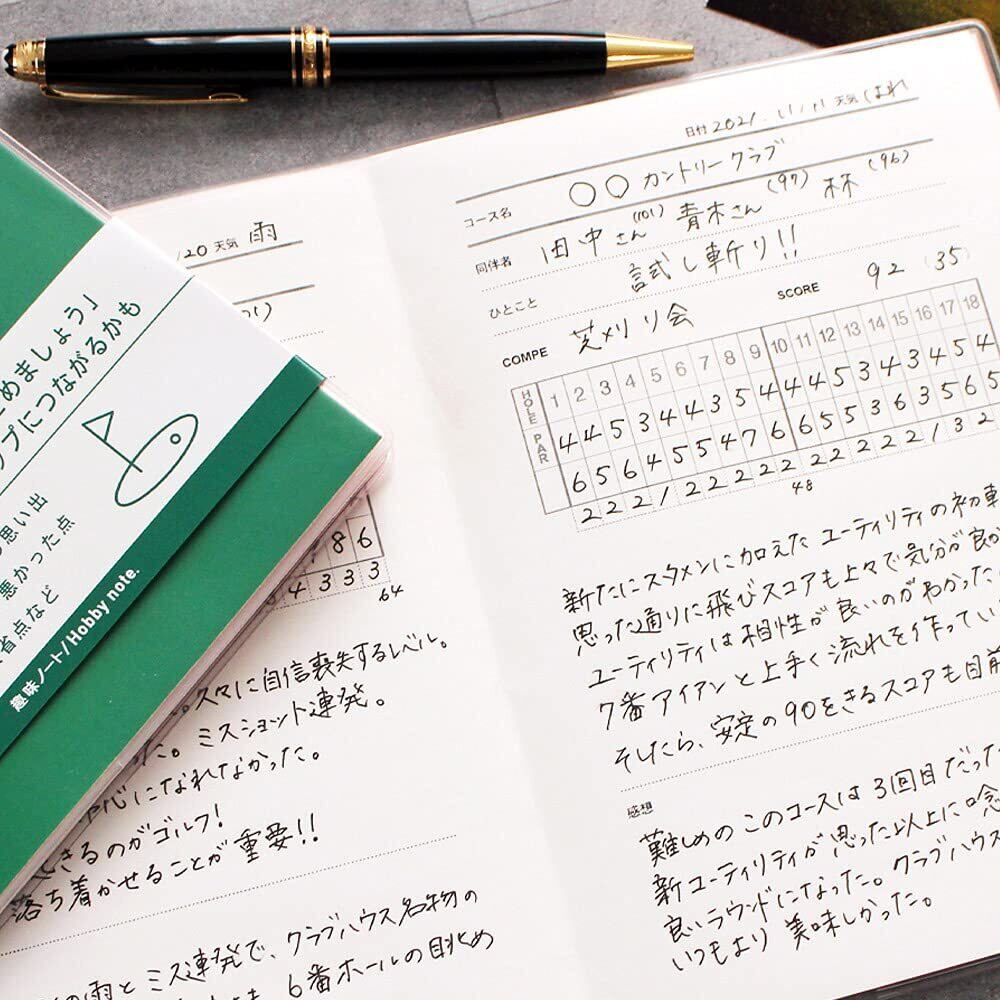 めましょう」
プにつながるかも
思い出
悪かった点
省点など
趣味ノート/Hobby note.
20 天気 雨
8 6
4 3 3 3
64
久々に自信喪失するレベル。
た。ミスショット連発。
心になれなかった。
きるのがゴルフ!
落ち着かせることが重要!!
の雨とミス連発で、クラブハウス名物の
6番ホールの眺め
日付 2021. 11/11 天気 はれ
コース名 ○○カントリークラブ
同伴者 田中さん(101) 青木さん(97) 林(96)
ひとこと 試し斬り!!
COMPE 芝メリリ会 SCORE 92 (35)
HOLE 1 2 3 4 5 6 7 8 9 10 11 12 13 14 15 16 17 18
PAR 4 4 5 3 4 4 3 5 4 4 4 5 3 4 3 4 5 4
6 5 6 4 5 5 4 7 6 6 5 5 3 6 3 5 6 5
2 2 2 1 2 2 2 2 2 2 2 2 2 2 1 3 2
48
新たにスタメンに加えたユーティリティの初車
思った通りに飛びスコアも上々で気分が良か
ユーティリティは相性が良いのがわかった
7番アイアンと上手く流れを作ってい
そしたら、安定の90をきるスコアも目前
感想
難しめのこのコースは3回目だった
新ユーティリティが思った以上に
良いラウンドになった。クラブハウス
いつもより美味しかった。